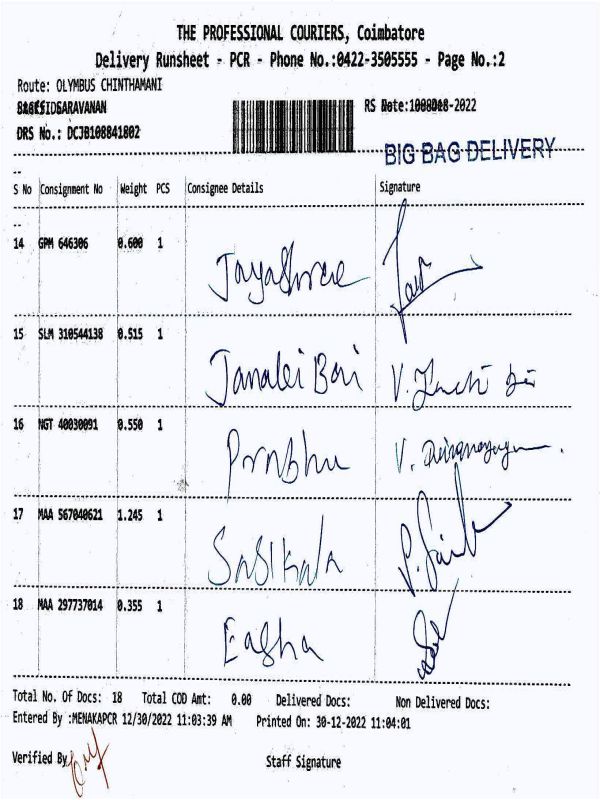 THE PROFESSIONAL COURIERS, Coimbatore
Delivery Runsheet - PCR - Phone No.:0422-3505555 - Page No.:2
Route: OLYMBUS CHINTHAMANI
SARAVANAN
RS Date: -2022
DRS No.: DCJB108841802
BIG BAG DELIVERY
S No Consignment No Weight PCS Consignee Details Signature
14 GPM 646306 0.600 1 Jayashree
15 SLM 310544138 0.515 1 Janaki Bai V.
16 NGT 40030091 0.550 1 Prabhu V.
17 MAA 567040621 1.245 1 Sasikala P.
18 MAA 297737014 0.355 1 Eagha
Total No. Of Docs: 18 Total COD Amt: 0.00 Delivered Docs: Non Delivered Docs:
Entered By :MENAKAPCR 12/30/2022 11:03:39 AM Printed On: 30-12-2022 11:04:01
Verified By
Staff Signature